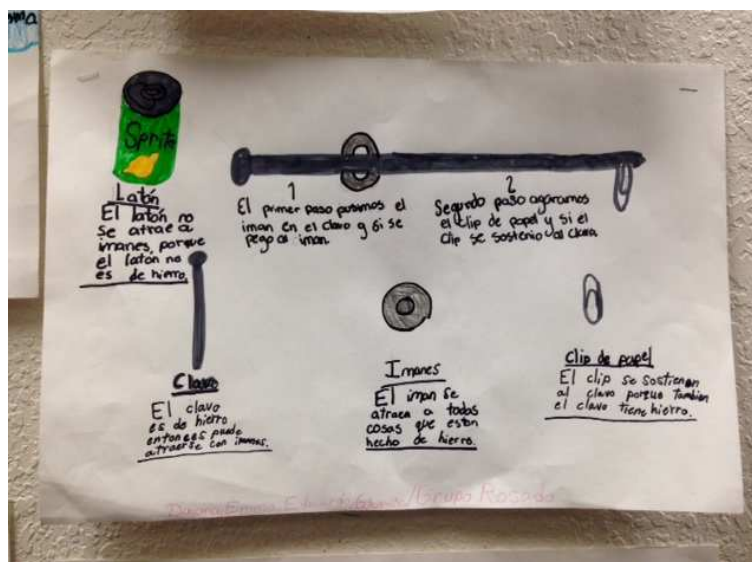 oma
Sprite
Latón
El latón no
se atrae a
imanes, porque
el latón no
es de hierro.
1
El primer paso pusimos el
iman en el clavo y si se
pego al iman.
2
Segundo paso agaramos
el clip de papel y si el
clip se sostenio al clavo.
Clavo
El clavo
es de hierro
entonces puede
atraerse con imanes.
Imanes
El iman se
atraen a todas
cosas que estan
hecho de hierro.
Clip de papel
El clip se sostienen
al clavo porque tambien
el clavo tiene hierro.
Emma, /Grupo Rosado